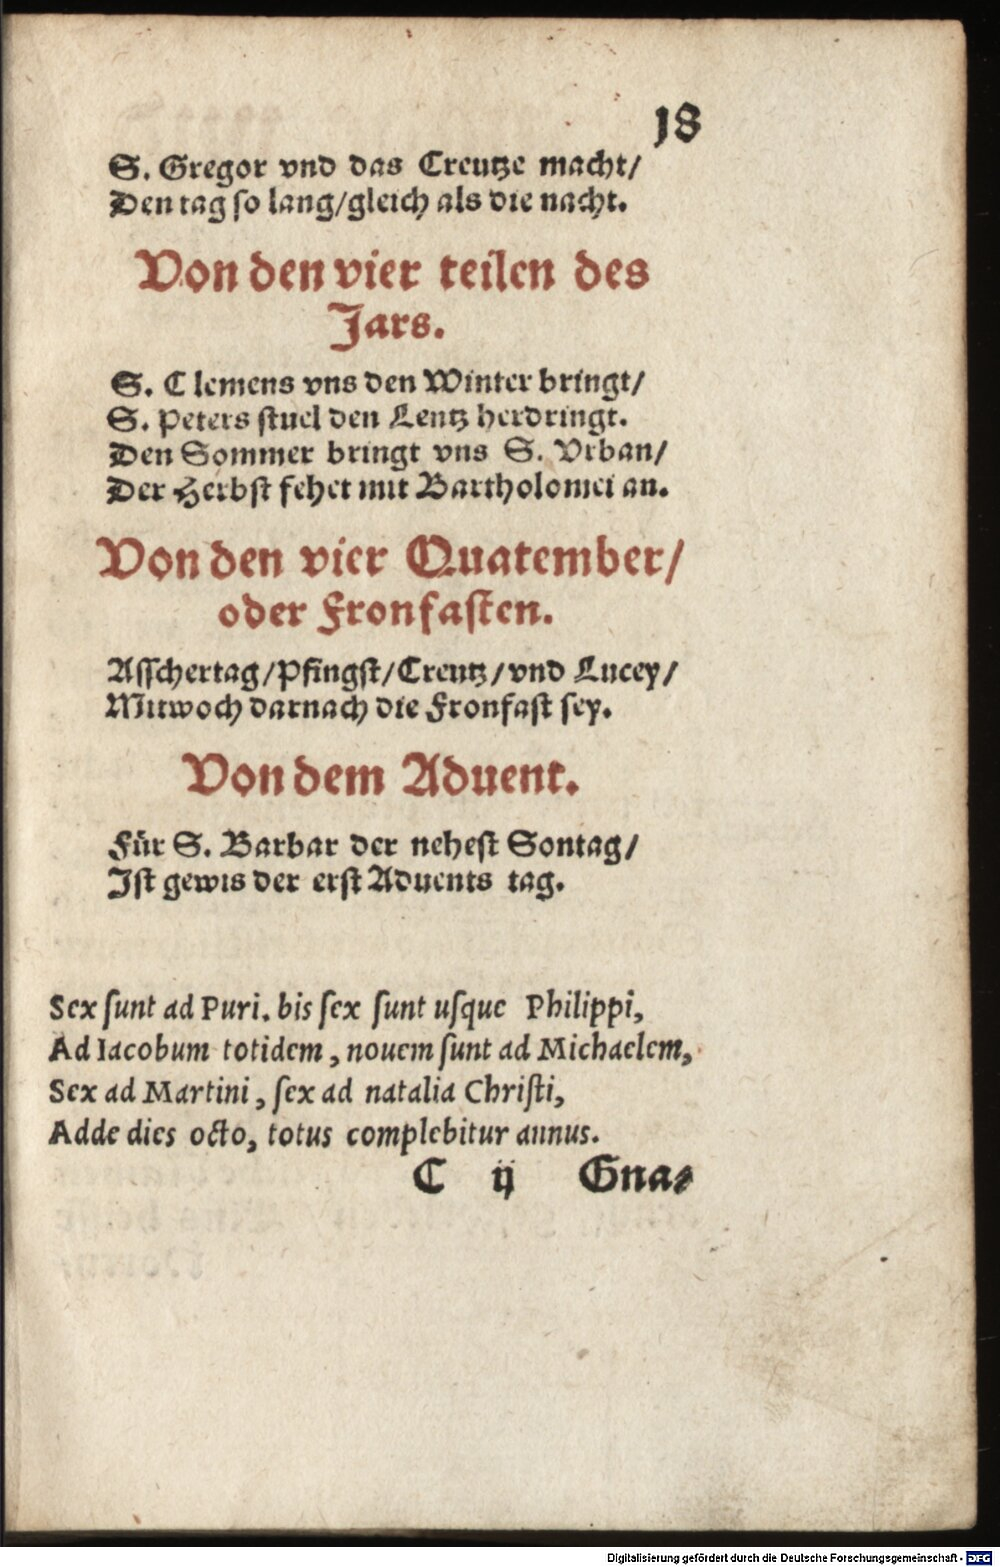 18
S. Gregor vnd das Creutze macht/
Den tag so lang/gleich als die nacht.
Von den vier teilen des
Jars.
S. Clemens vns den Winter bringt/
S. Peters stuel den Lentz herdringt.
Den Sommer bringt vns S. Vrban/
Der Herbst fehet mit Bartholomei an.
Von den vier Quatember/
oder Fronfasten.
Asschertag/Pfingst/Creutz/vnd Lucey/
Mitwoch darnach die Fronfast sey.
Von dem Aduent.
Für S. Barbar der nehest Sontag/
Ist gewis der erst Aduents tag.
Sex ſunt ad Puri. bis ſex ſunt uſque Philippi,
Ad Iacobum totidem, nouem ſunt ad Michaelem,
Sex ad Martini, ſex ad natalia Chriſti,
Adde dies octo, totus complebitur annus.
C ij Gna-
Digitalisierung gefördert durch die Deutsche Forschungsgemeinschaft - DFG